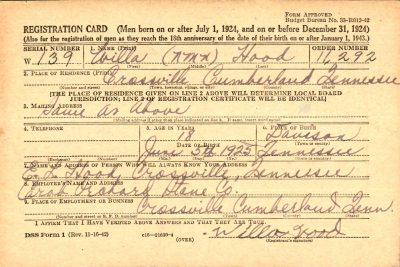 FORM APPROVED
Budget Bureau No. 33-R012-42
REGISTRATION CARD (Men born on or after July 1, 1924, and on or before December 31, 1924)
(Also for the registration of men as they reach the 18th anniversary of the date of their birth on or after January 1, 1943.)
SERIAL NUMBER 1. NAME (Print) ORDER NUMBER
W 139 Willa (NMN) Hood 14,292
(First) (Middle) (Last)
2. PLACE OF RESIDENCE (Print)
Crossville Cumberland Tennessee
(Number and street) (Town, township, village, or city) (County) (State)
[THE PLACE OF RESIDENCE GIVEN ON LINE 2 ABOVE WILL DETERMINE LOCAL BOARD
JURISDICTION; LINE 2 OF REGISTRATION CERTIFICATE WILL BE IDENTICAL]
3. MAILING ADDRESS
Same As Above
[Mailing address if other than place indicated on line 2. If same, insert word same]
4. TELEPHONE 5. AGE IN YEARS 6. PLACE OF BIRTH
18 Davidson
DATE OF BIRTH
June 5th 1925 Tennessee
(Exchange) (Number) (Mo.) (Day) (Yr.) (State or country)
7. NAME AND ADDRESS OF PERSON WHO WILL ALWAYS KNOW YOUR ADDRESS
Hood, Crossville, Tennessee
8. EMPLOYER'S NAME AND ADDRESS
Crab Orchard Stone Co.
9. PLACE OF EMPLOYMENT OR BUSINESS
Crossville Cumberland Tenn.
(Number and street or R. F. D. number) (Town) (County) (State)
I AFFIRM THAT I HAVE VERIFIED ABOVE ANSWERS AND THAT THEY ARE TRUE.
DSS Form 1 (Rev. 11-16-42) (OVER) Willa Hood
(Registrant's signature)